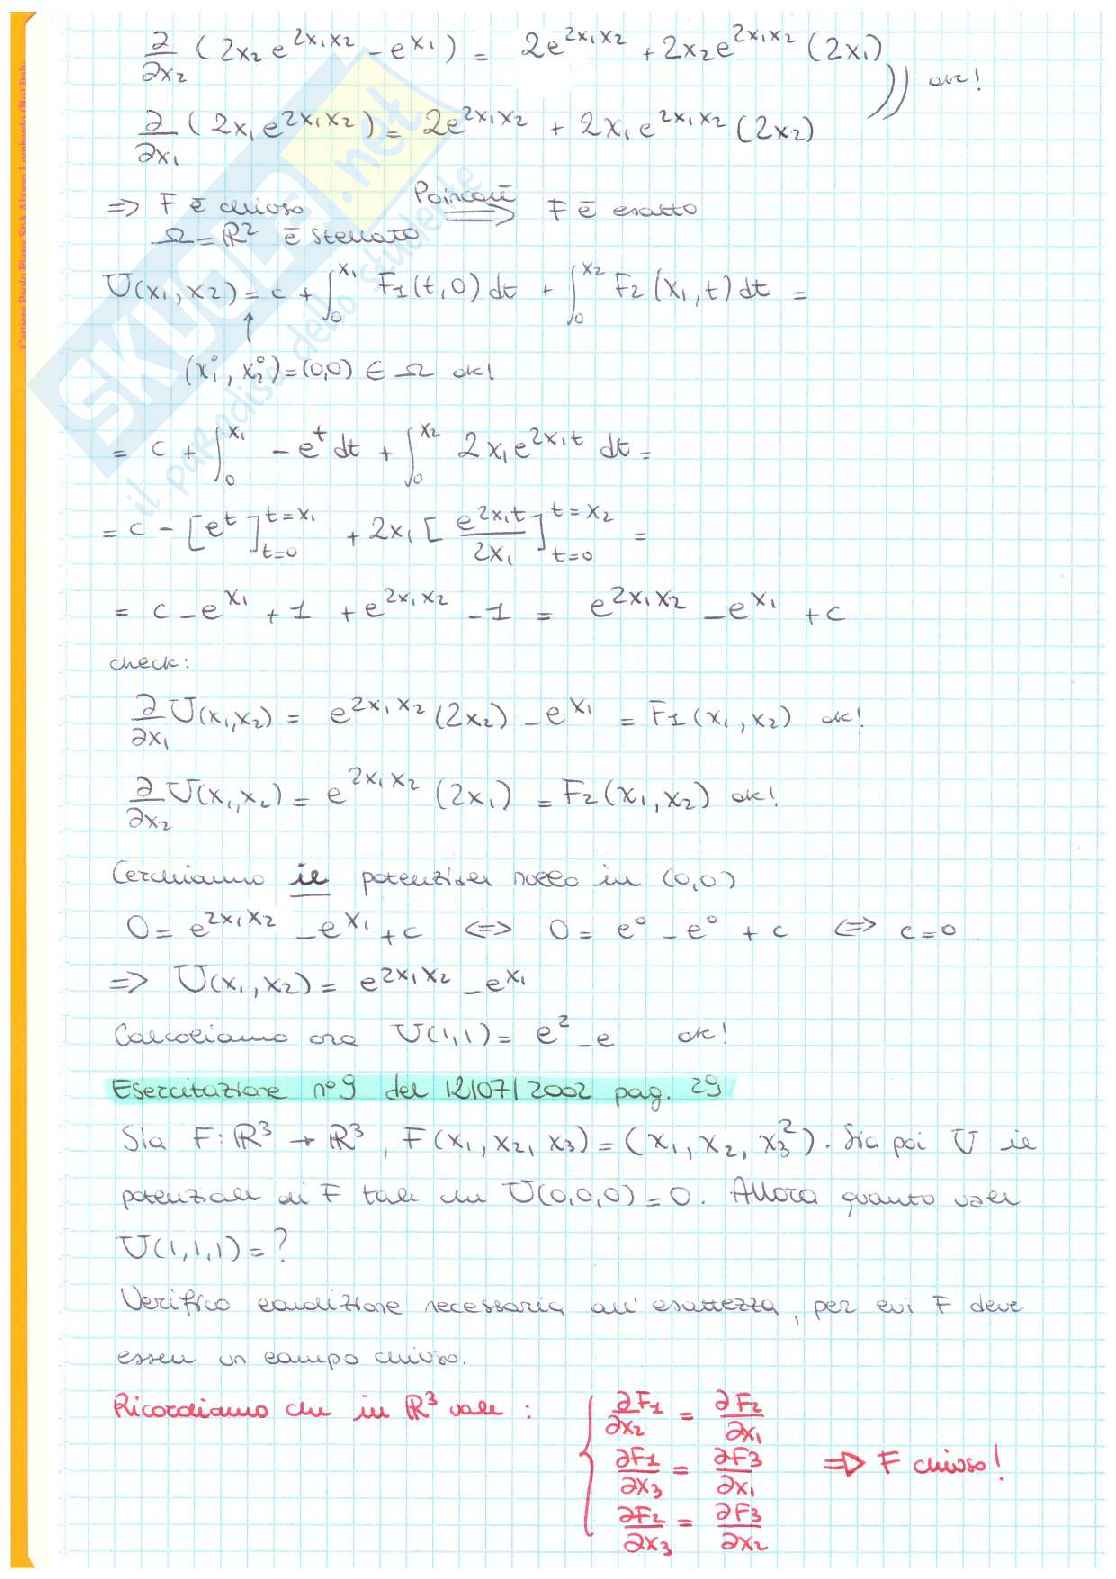 ∂/∂x₂ (2x₂ e^{2x₁x₂} - e^{x₁}) = 2e^{2x₁x₂} + 2x₂e^{2x₁x₂} (2x₁)
ok!
∂/∂x₁ (2x₁ e^{2x₁x₂}) = 2e^{2x₁x₂} + 2x₁e^{2x₁x₂} (2x₂)
⇒ F è chiuso Poincaré ⇒ F è esatto
Ω = ℝ² è stellato
U(x₁, x₂) = c + ∫₀^{x₁} F₁(t,0) dt + ∫₀^{x₂} F₂(x₁,t) dt =
↑
(x₁°, x₂°) = (0,0) ∈ Ω ok!
= c + ∫₀^{x₁} - e^t dt + ∫₀^{x₂} 2x₁e^{2x₁t} dt =
= c - [e^t]_{t=0}^{t=x₁} + 2x₁ [e^{2x₁t}/2x₁]_{t=0}^{t=x₂} =
= c - e^{x₁} + 1 + e^{2x₁x₂} - 1 = e^{2x₁x₂} - e^{x₁} + c
check:
∂/∂x₁ U(x₁,x₂) = e^{2x₁x₂} (2x₂) - e^{x₁} = F₁(x₁,x₂) ok!
∂/∂x₂ U(x₁,x₂) = e^{2x₁x₂} (2x₁) = F₂(x₁,x₂) ok!
Cerchiamo il potenziale nullo in (0,0)
0 = e^{2x₁x₂} - e^{x₁} + c ⇔ 0 = e° - e° + c ⇔ c=0
⇒ U(x₁,x₂) = e^{2x₁x₂} - e^{x₁}
Calcoliamo ora U(1,1) = e² - e ok!
Esercitazione n°9 del 12/07/2002 pag. 29
Sia F: ℝ³ → ℝ³, F(x₁, x₂, x₃) = (x₁, x₂, x₃²). Sia poi U il
potenziale di F tale che U(0,0,0) = 0. Allora quanto vale
U(1,1,1) = ?
Verifico condizione necessaria all'esattezza, per cui F deve
essere un campo chiuso.
Ricordiamo che in ℝ³ vale :
{ ∂F₁/∂x₂ = ∂F₂/∂x₁
∂F₁/∂x₃ = ∂F₃/∂x₁ ⇒ F chiuso!
∂F₂/∂x₃ = ∂F₃/∂x₂
SKUOLA.net
il paradiso dello studente